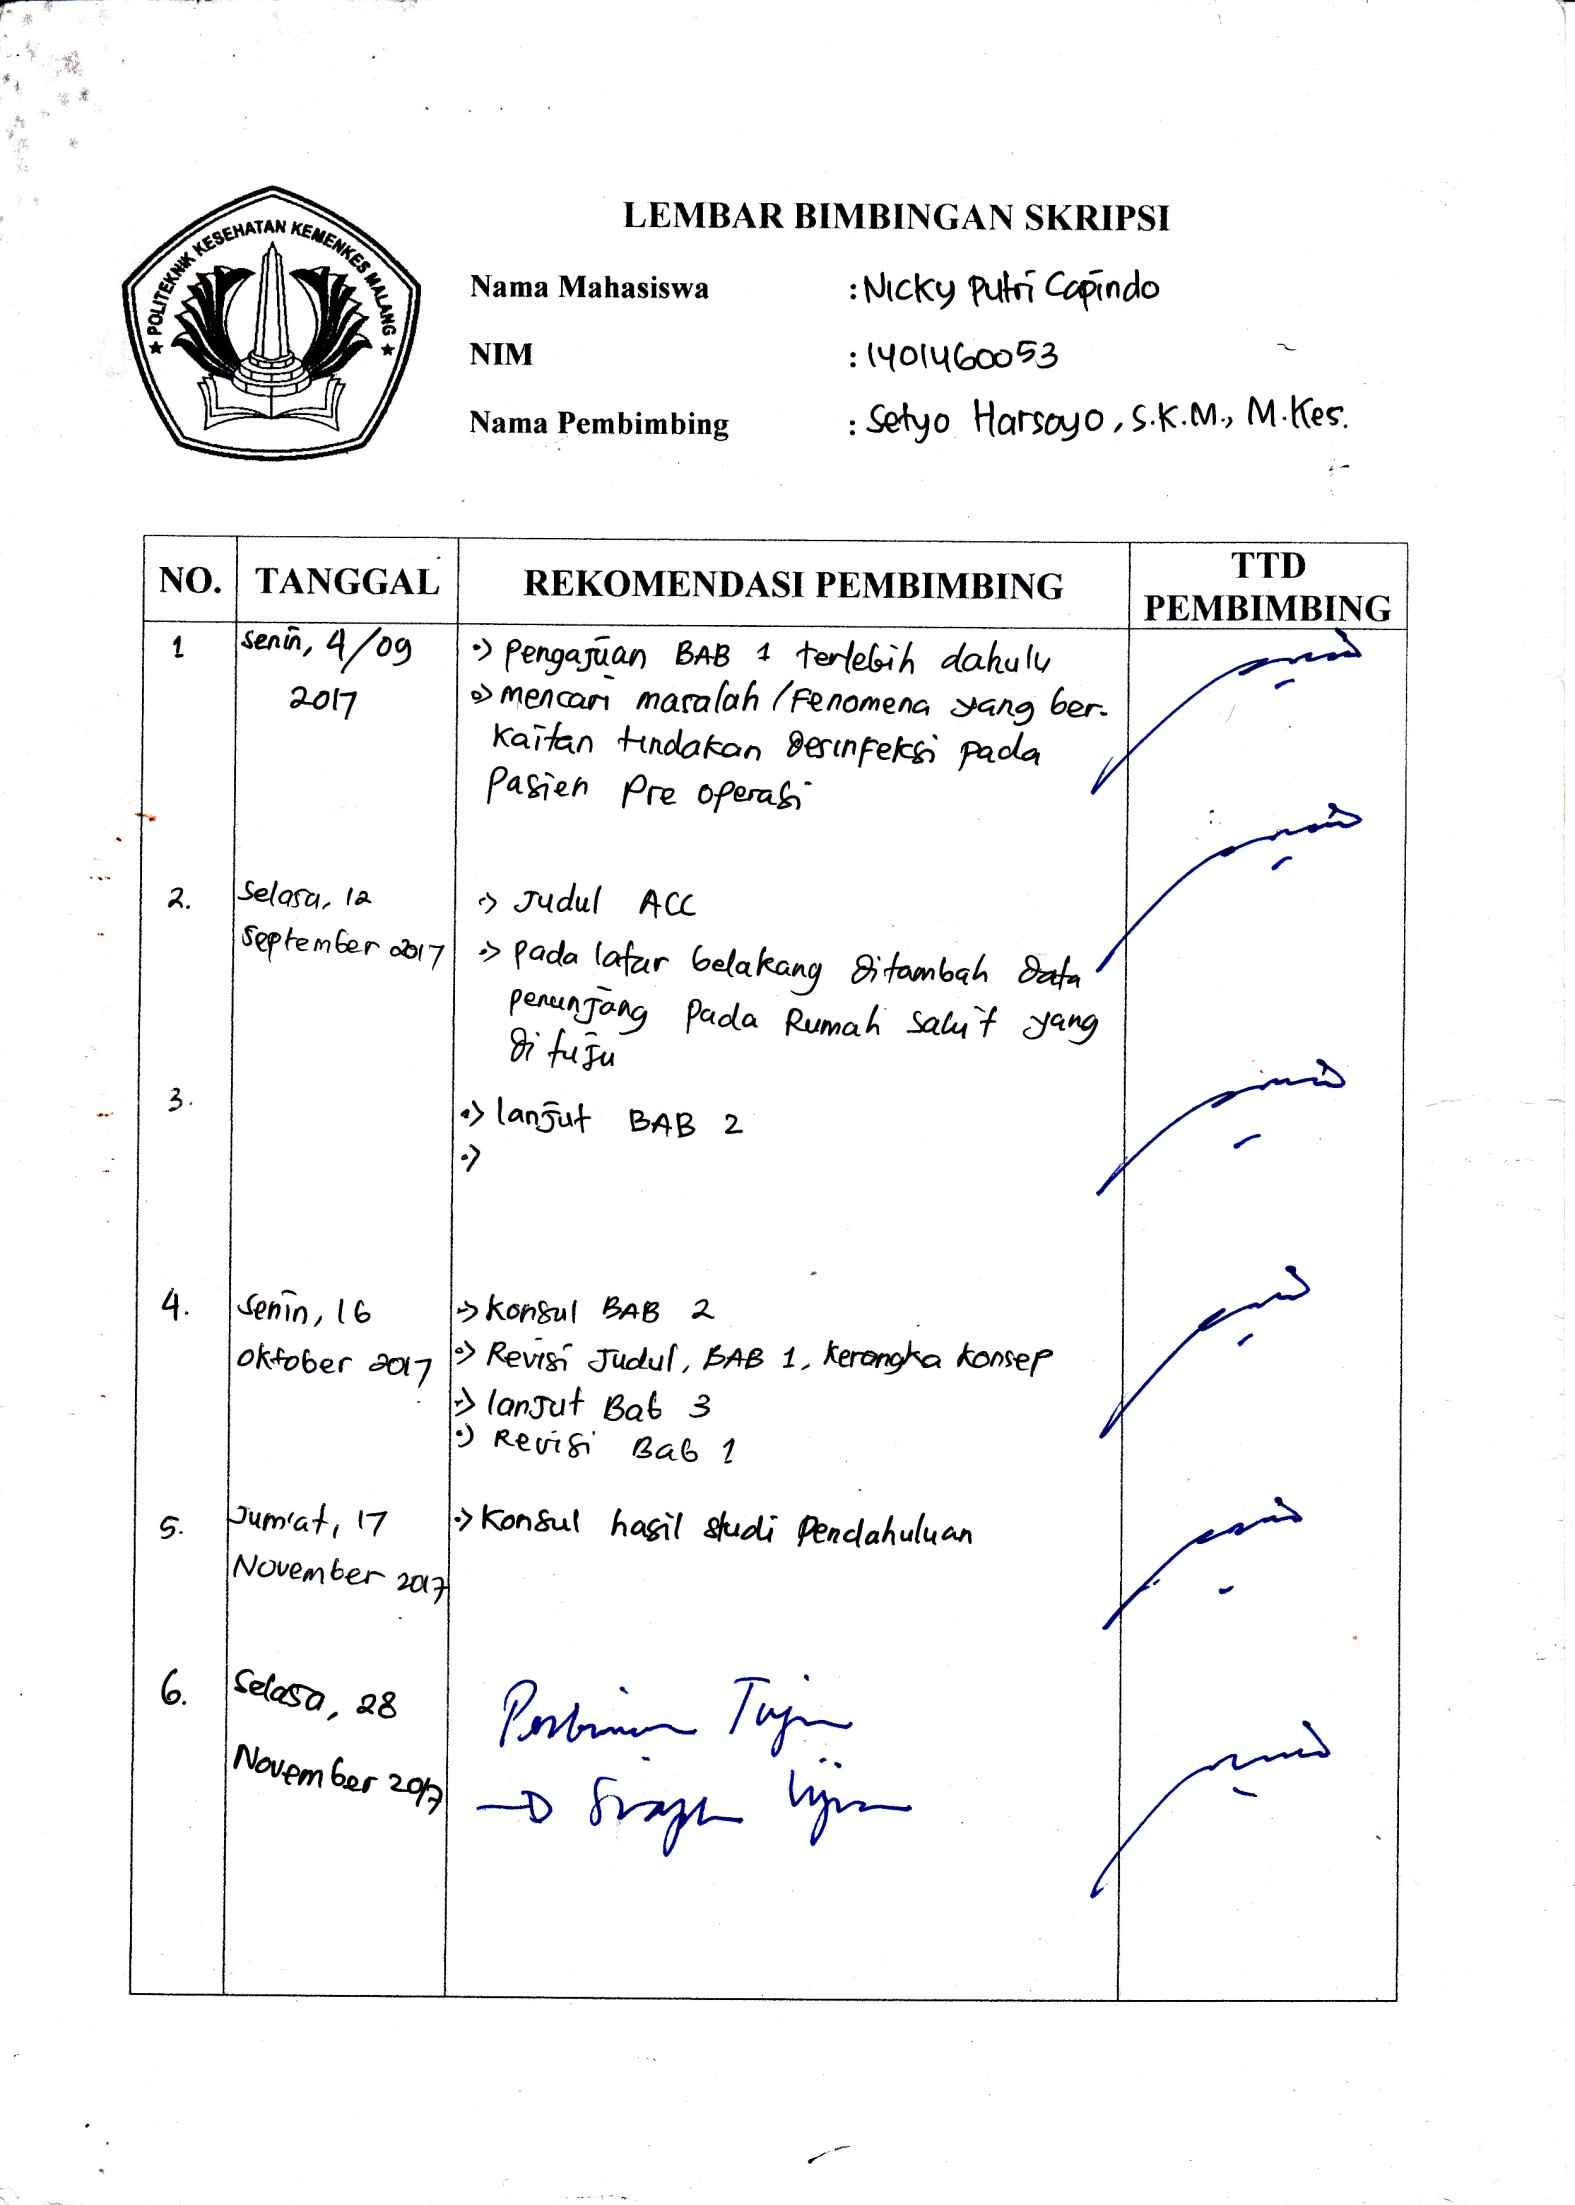 ★ POLITEKNIK KESEHATAN KEMENKES MALANG ★
LEMBAR BIMBINGAN SKRIPSI
Nama Mahasiswa : Nicky Putri Capindo
NIM : 1401460053
Nama Pembimbing : Setyo Harsoyo, S.K.M., M.Kes.
NO. TANGGAL REKOMENDASI PEMBIMBING TTD PEMBIMBING
1 Senin, 4/09 2017
Pengajuan BAB 1 terlebih dahulu
mencari masalah / Fenomena yang ber-
kaitan tindakan desinfeksi pada
Pasien Pre operasi
2. Selasa, 12
September 2017
Judul ACC
pada latar belakang ditambah data
penunjang pada Rumah sakit yang
dituju
3. lanjut BAB 2
4. Senin, 16
Oktober 2017
Konsul BAB 2
Revisi Judul, BAB 1, kerangka konsep
lanjut Bab 3
Revisi Bab 1
5. Jum'at, 17
November 2017
Konsul hasil studi Pendahuluan
6. Selasa, 28
November 2017